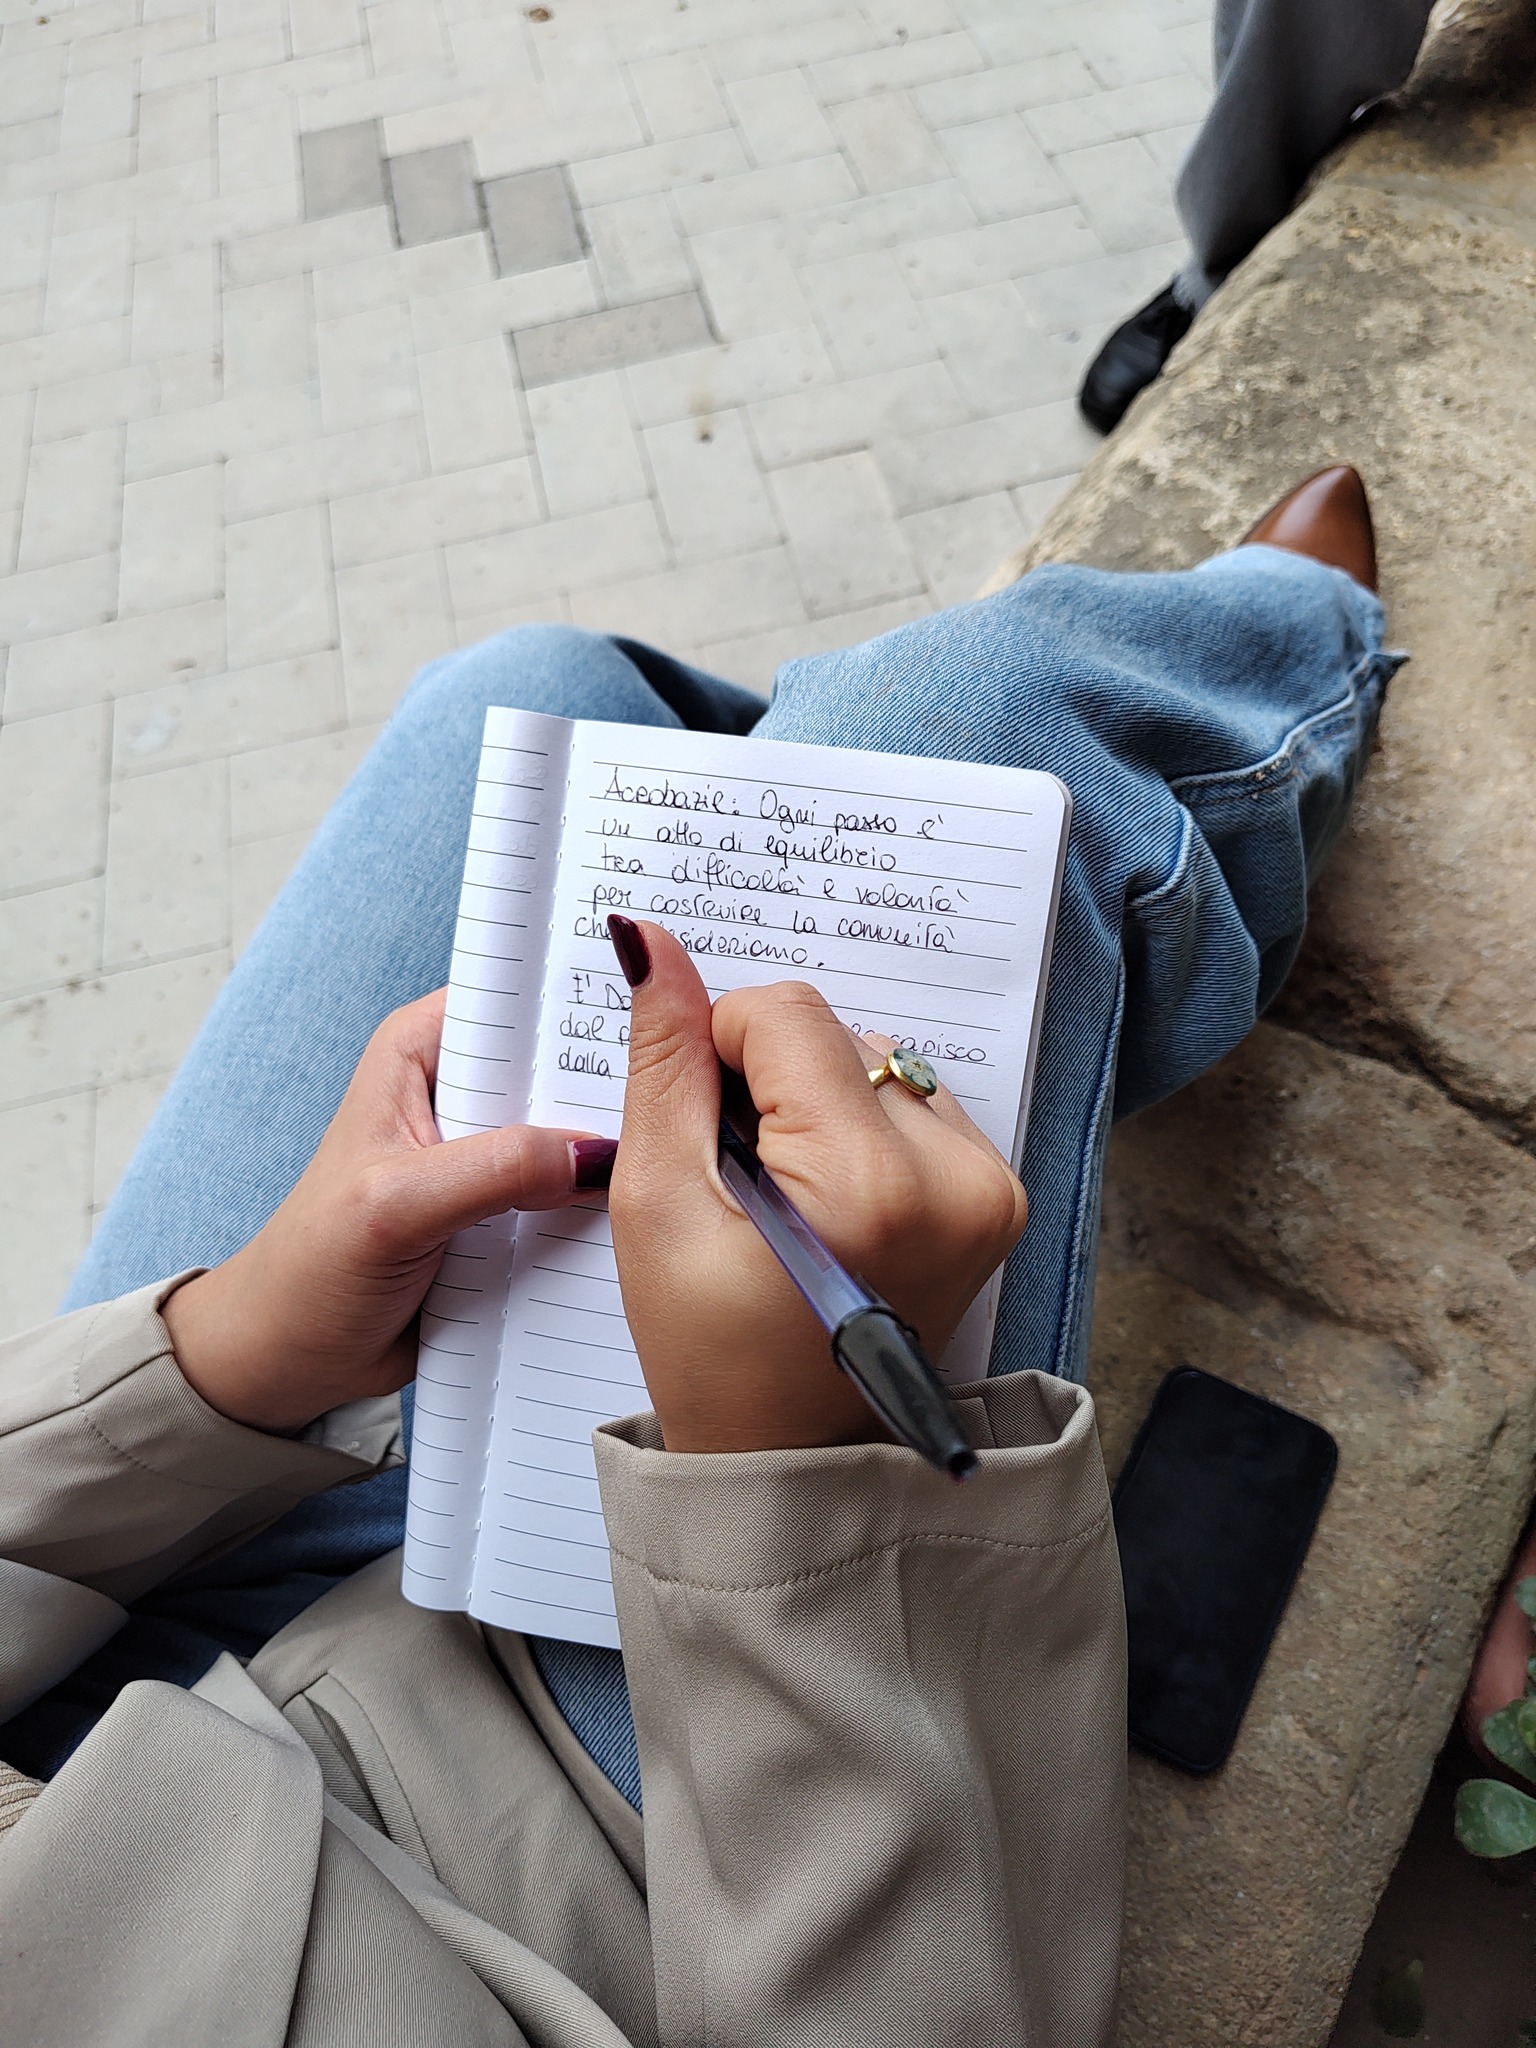 Acrobazie: Ogni passo è
un atto di equilibrio
tra difficoltà e volontà
per costruire la comunità
che desideriamo.
E'
dal capisco
dalla